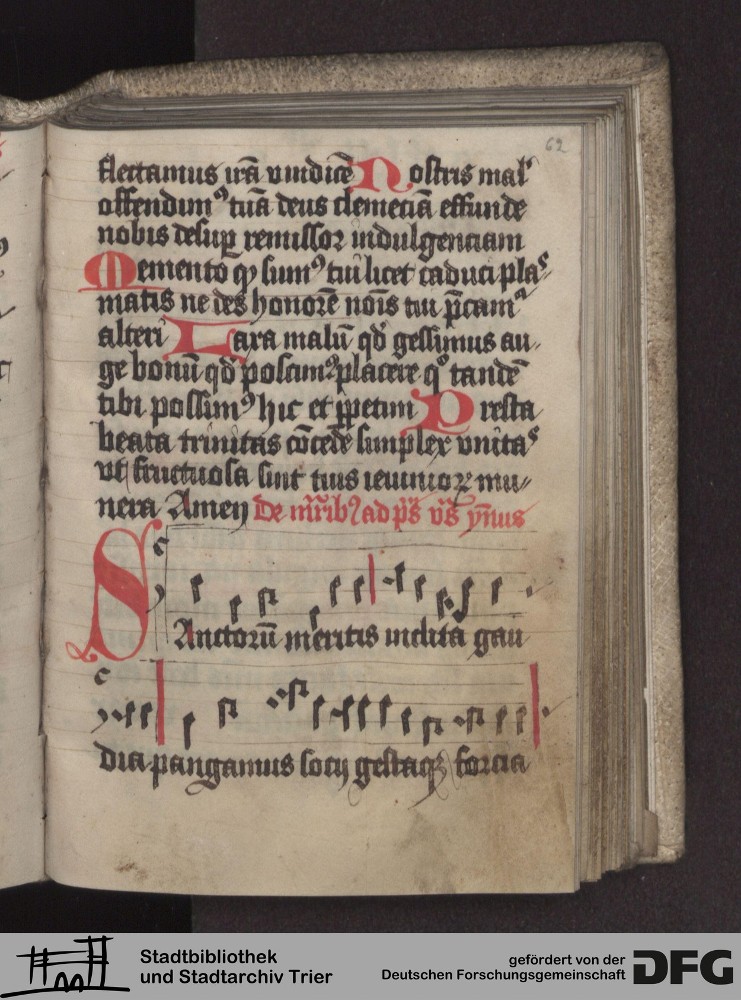 62
flectamus irā vindicē Nostris mal᷒
offendimꝰ tuā deus clemēciā effunde
nobis desuꝑ remissoꝛ indulgenciam
Memento ꝙ sumꝰ tui licet caduci plas
matis ne des honorē nōis tui p̄camꝰ
alteri Laxa malū qd̄ gessimus au-
ge bonū qd̄ poscimꝰ placere qͦ tandē
tibi possimꝰ hic et ꝑpetim Presta
beata trinitas cōcede simplex vnitas
vt fructuosa sint tuis ieiunioꝝ mu-
nera Amen De mr̄ribꝰ ad vs̄ ymus
SAnctorū meritis inclita gau
dia pangamus socij gestaqꝫ forcia
Stadtbibliothek
und Stadtarchiv Trier
gefördert von der
Deutschen Forschungsgemeinschaft
DFG